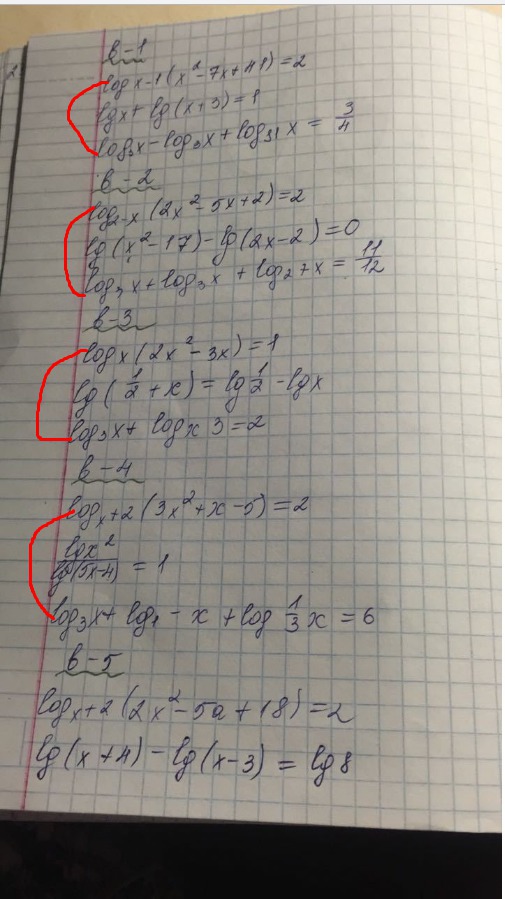 в-1
log x-1 (x²-7x+41)=2
lgx+lg(x+3)=1
log₃x-log₉x+log₈₁x = 3/4
в-2
log₂₋ₓ(2x²-5x+2)=2
lg(x²-17)-lg(2x-2)=0
log₃x+log₉x+log₂₇x = 11/12
в-3
logx(2x²-3x)=1
lg(1/2+x)=lg 1/2-lgx
log₃x+logx 3=2
в-4
logₓ+2(3x²+x-5)=2
lgx²/lg(5x-4) = 1
log₃x+log₁-x+log 1/3 x = 6
в-5
logₓ+2(2x²-5a+18)=2
lg(x+4)-lg(x-3) = lg 8